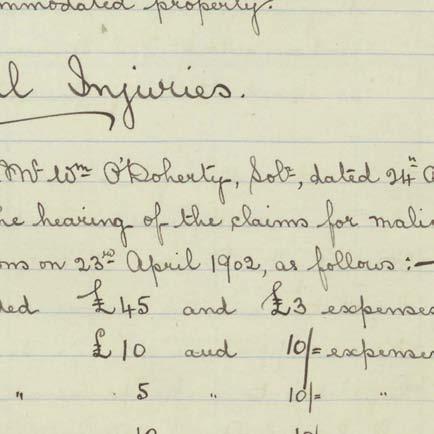 mmodated property.
l Injuries.
Mr Wm O'Doherty, Solr, dated 24th A
he hearing of the claims for mali
ons on 23rd April 1902, as follows :—
ded £45 and £3 expenses
£10 and 10/= expenses
" 5 " 10/= "
10 10/=